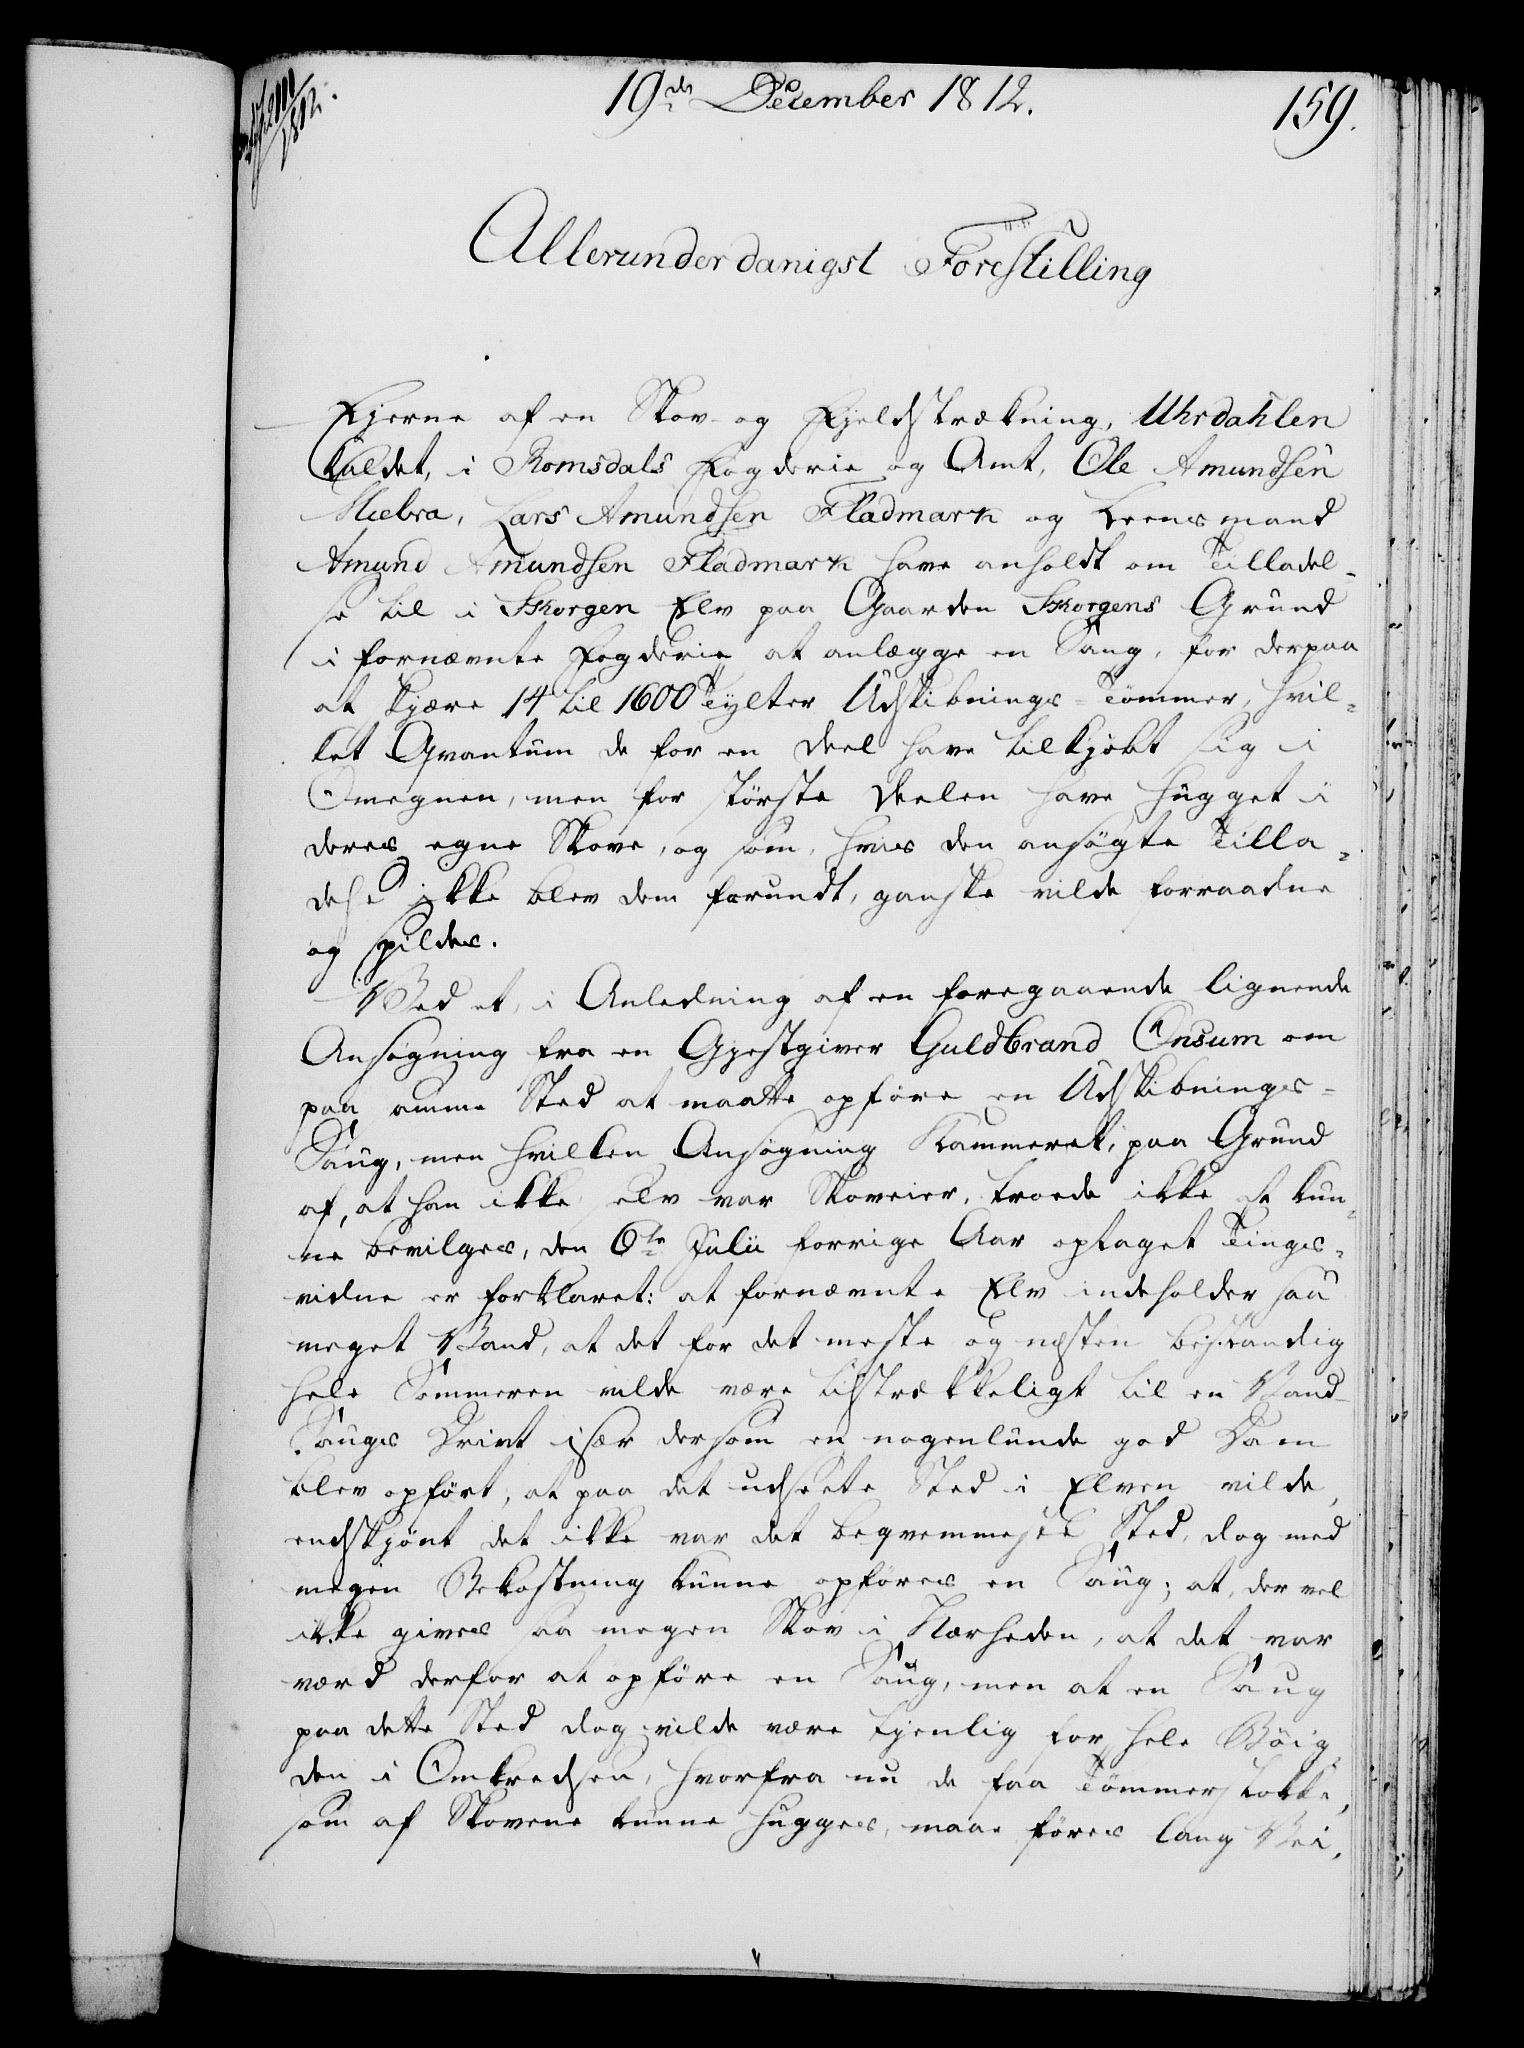 19de December 1812.
159.
1812.
Allerunderdanigst Forestilling
Ejerne af en Skov- og Fjeldstrækning, Uhrdahlen
kaldet, i Romsdals Fogderie og Amt, Ole Amundsen
Mæbra, Lars Amundsen Fladmark og Leensmand
Amund Amundsen Fladmark have anholdt om Tilladel-
se til i Skorgen Elv paa Gaarden Skorgens Grund
i fornævnte Fogderie at anlægge en Saug, for derpaa
at skjære 14 til 1600 Tylter Udskibnings-Tömmer, hvil-
ket Qvantum de for en Deel have tilkjöbt sig i
Omegnen, men for störste Deelen have hugget i
deres egne Skove, og som, hvis den ansögte Tilla-
delse ikke blev dem forundt, ganske vilde forraadne
og spildes.
Ved et, i Anledning af en foregaaende lignende
Ansögning fra en Gjestgiver Guldbrand Onsum om
paa samme Sted at maatte opföre en Udskibnings-
Saug, men hvilken Ansögning Kammeret, paa Grund
af, at han ikke selv var Skoveier, troede ikke at kun-
ne bevilges, den 6te Julii forrige Aar optaget Tings-
vidne er forklaret: at fornævnte Elv indeholder saa
meget Vand, at det for det meste og næsten bestandig
hele Sommeren vilde være tilstrækkeligt til en Vand-
Saugs Drivt især dersom en nogenlunde god Dam
blev opfört, at paa det udseete Sted i Elven vilde,
endskjönt det ikke var det beqvemmeste Sted, dog med
megen Bekostning kunne opföres en Saug; at der vel
ikke gives saa megen Skov i Nærheden, at det var
værd derfor at opföre en Saug, men at en Saug
paa dette Sted dog vilde være tjenlig for hele Böig-
den i Omkredsen, hvorfra nu de faa Tömmerstokke,
som af Skovene kunne hugges, maae föres lang Vei,